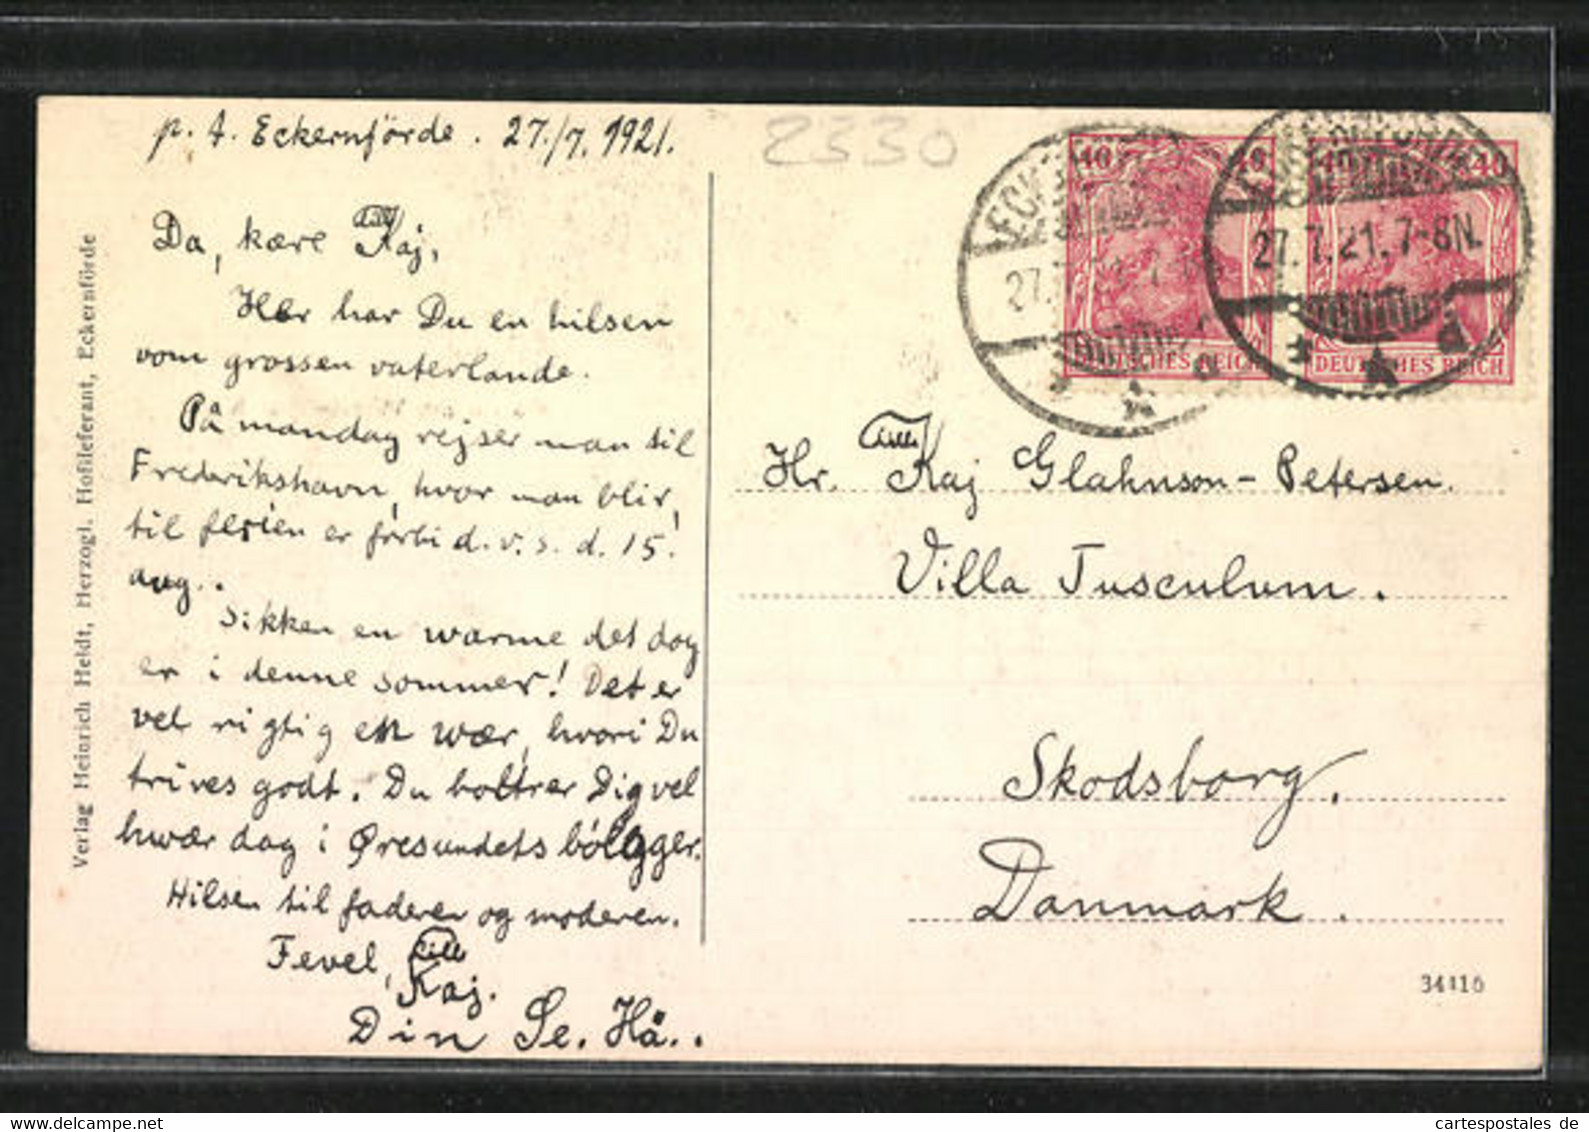 p. t. Eckernförde. 27./7. 1921.
Da, kære Kaj,
Her har Du en hilsen
vom grossen vaterlande.
På mandag rejser man til
Fredrikshavn, hvor man blir,
til ferien er forbi d. v. s. d. 15.
aug..
Sikken en warme det dog
er i denne sommer! Det er
vel rigtig en wær, hvori Du
trives godt. Du boltrer Dig vel
hwær dag i Øresundets bølgger.
Hilsen til faderen og moderen.
Fevel, Kaj.
Din Se. Hä..
Verlag Heinrich Heldt, Herzogl. Hoflieferant, Eckernförde
2330
40 40
DEUTSCHES REICH
40 40
DEUTSCHES REICH
27.7.21.7-8N.
Hr. Kaj Glahnson-Petersen.
Villa Tusculum.
Skodsborg,
Danmark.
34116
cartespostales de